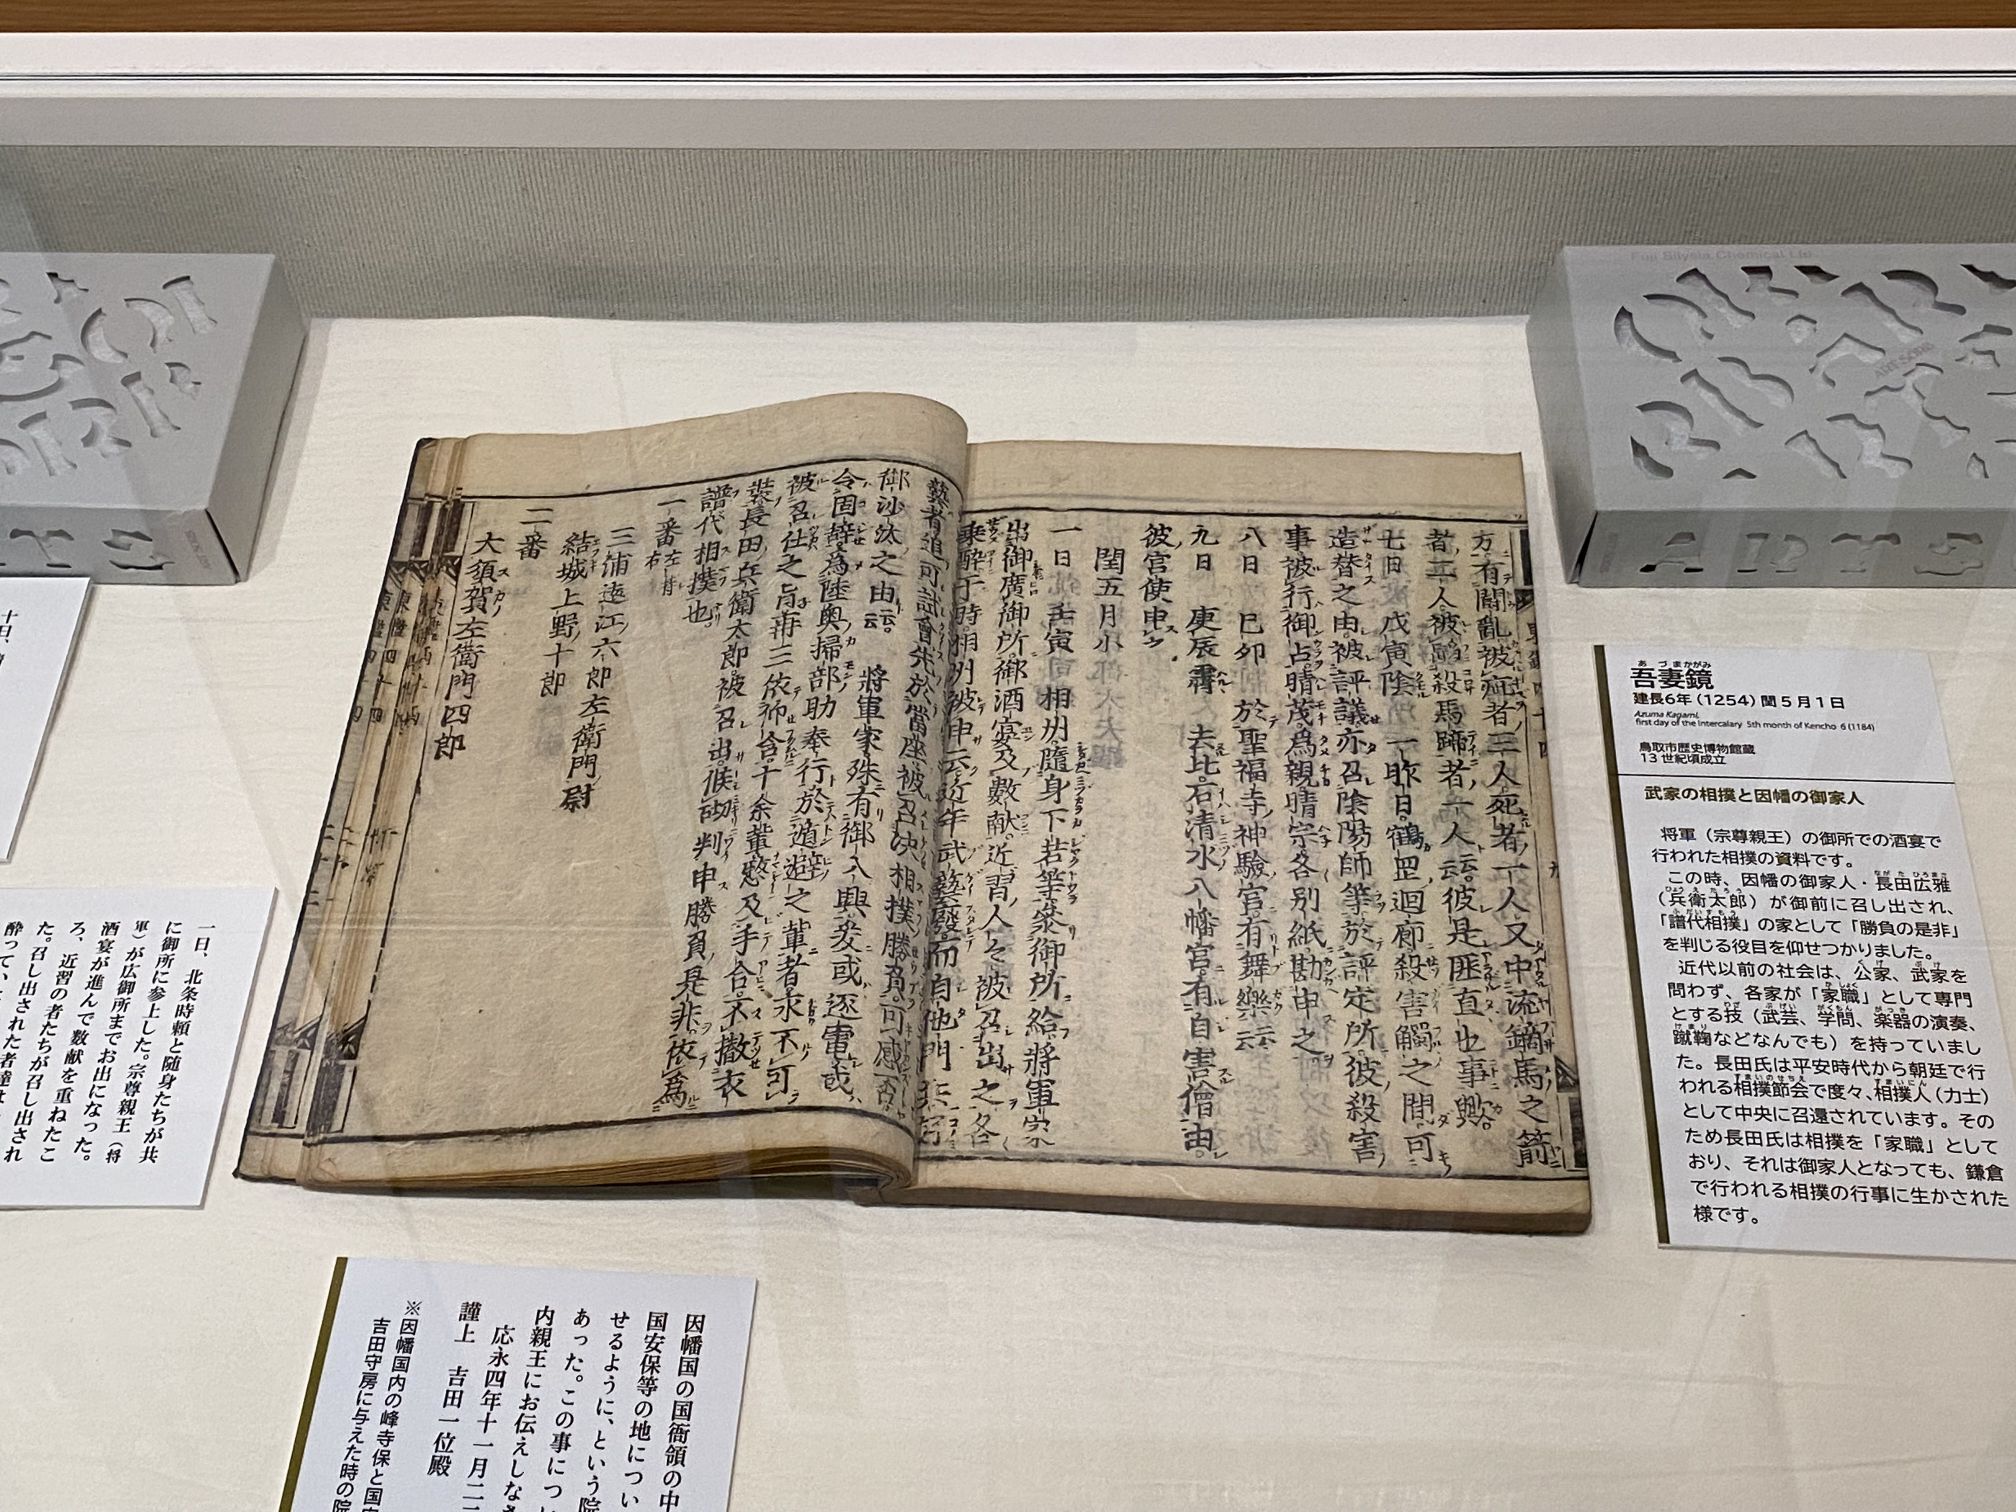 方有鬪亂被疵者三人死者一人又中流鏑馬之箭
者二人被蹴殺馬蹄者一人云云彼是匪直也事歟
七日 戊寅陰 一昨日鶴岡迴廊殺害觸之間可
造替之由被評議亦召陰陽師等於評定所彼殺害
事被行御占晴茂爲親晴宗各別紙勘申之
八日 己卯 於聖福寺神驗宮有舞樂云云
九日 庚辰霽 去比石清水八幡宮有自害僧由
彼宮使申
閏五月小
一日 壬寅 相州隨身下若等參御所給將軍家
出御廣御所御酒宴及數献近習人々被召出之各
乘醉于時相州被申云近年武藝廢而自他門
藝者追可試會先於當座被召决相撲勝負可感否
御沙汰之由云云 將軍家殊有御入興爰或逐電或
令固辞爲陸奥掃部助奉行於遁避之輩者永不可
被召仕之旨再三依仰含十余輩憖及手合不撤衣
裝長田兵衛太郎被召出候砌判申勝負是非依爲
譜代相撲也
一番 左持 右
三浦遠江六郎左衛門尉
結城上野十郎
二番
大須賀左衛門四郎
吾妻鏡
あづまかがみ
建長6年（1254）閏5月1日
Azuma Kagami,
first day of the Intercalary 5th month of Kencho 6 (1184)
鳥取市歴史博物館蔵
13世紀頃成立
武家の相撲と因幡の御家人
将軍（宗尊親王）の御所での酒宴で
行われた相撲の資料です。
この時、因幡の御家人・長田広雅
（兵衛太郎）が御前に召し出され、
「譜代相撲」の家として「勝負の是非」
を判じる役目を仰せつかりました。
近代以前の社会は、公家、武家を
問わず、各家が「家職」として専門
とする技（武芸、学問、楽器の演奏、
蹴鞠などなんでも）を持っていまし
た。長田氏は平安時代から朝廷で行
われる相撲節会で度々、相撲人（力士）
として中央に召還されています。その
ため長田氏は相撲を「家職」として
おり、それは御家人となっても、鎌倉
で行われる相撲の行事に生かされた
様です。
一日、北条時頼と随身たちが共
に御所に参上した。宗尊親王（将
軍）が広御所までお出になった。
酒宴が進んで数献を重ねたこ
ろ、近習の者たちが召し出され
た。召し出された者達は
酔って、
因幡国の国衙領の中
国安保等の地につい
せるように、という院
あった。この事につ
内親王にお伝えしな
応永四年十一月二
謹上 吉田一位殿
※因幡国内の峰寺保と国
吉田守房に与えた時の院
Fuji Silysia Chemical Ltd.
ARTS